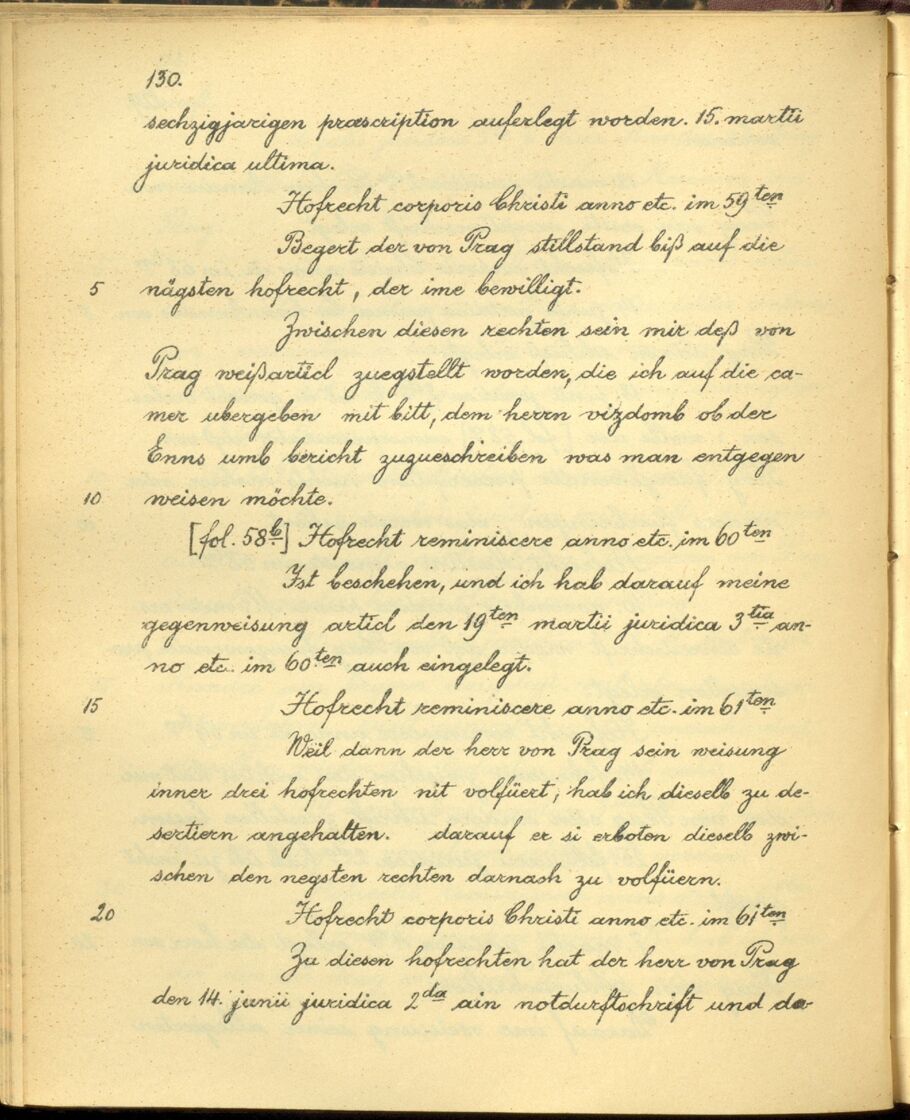 130.
sechzigjarigen præscription auferlegt worden. 15. martii
juridica ultima.
Hofrecht corporis Christi anno etc. im 59ten
Begert der von Prag stillstand biß auf die
5 nägsten hofrecht, der ime bewilligt.
Zwischen diesen rechten sein mir deß von
Prag weißarticl zuegstellt worden, die ich auf die ca-
mer ubergeben mit bitt, dem herrn vizdomb ob der
Enns umb bericht zuzueschreiben was man entgegen
10 weisen möchte.
[fol. 58b] Hofrecht reminiscere anno etc. im 60ten
Ist beschehen, und ich hab darauf meine
gegenweisung articl den 19ten martii juridica 3tia an-
no etc. im 60ten auch eingelegt.
15 Hofrecht reminiscere anno etc. im 61ten
Weil dann der herr von Prag sein weisung
inner drei hofrechten nit volfüert, hab ich dieselb zu de-
sertiern angehalten. darauf er si erboten dieselb zwi-
schen den negsten rechten darnach zu volfüern.
20 Hofrecht corporis Christi anno etc. im 61ten
Zu diesen hofrechten hat der herr von Prag
den 14. junii juridica 2da ain notdurftschrift und da-